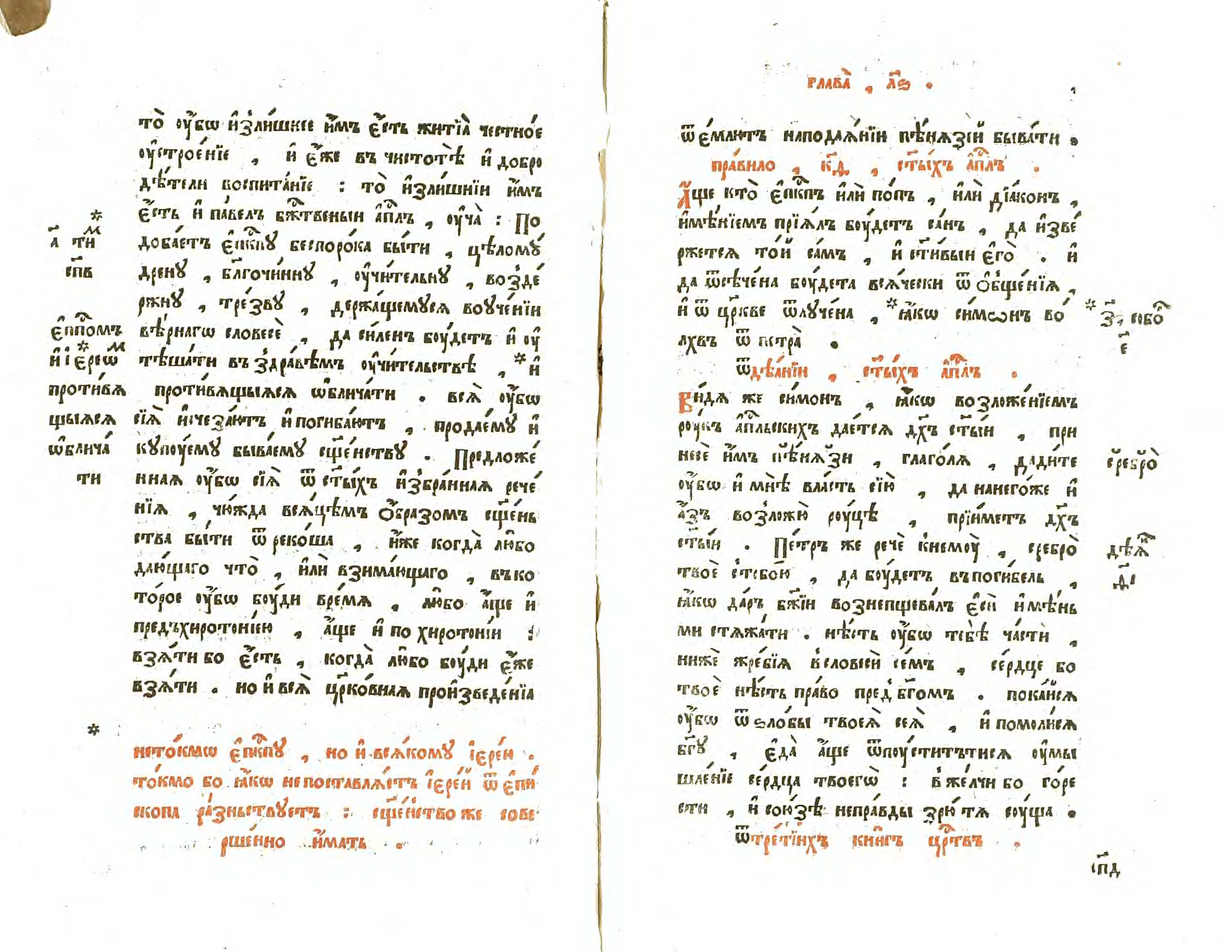 то̀ оу҆́бѡ и҆зли́шнее и҆́мъ є҆́сть житїѧ̀ че́стное
оу҆строе́нїе , и҆ є҆́же въ чистотѣ̀ и҆ добро
дѣ́тели воспита́нїе : то̀ и҆зли́шнїи и҆́мъ
є҆́сть и҆ па́велъ бж҃твеныи а҆пл҃ъ , оу҆ча̀ : По
доба́етъ є҆пкпꙋ беспоро́ка бы́ти , цѣ́ломꙋ
дренꙋ , бл҃гочи́ннꙋ , оу҆чи́тельнꙋ , возде
ржнꙋ , тре́звꙋ , держа́щемꙋсѧ воуче́нїи
вѣ́рнагѡ словесѐ , да си́ленъ боу́детъ и҆ оу҆
тѣша́ти въ здра́вѣмъ оу҆чи́тельствѣ , * и҆
проти́вѧщыѧсѧ ѡ҆блича́ти . всѧ̀ оу҆́бѡ
сїѧ̀ и҆счеза́ютъ и҆ погиба́ютъ , продае́мꙋ и҆
кꙋпꙋ́емꙋ быва́емꙋ сщ҃е́нствꙋ . Предложе́
ннаѧ оу҆́бѡ сїѧ̀ ѿ ст҃ы́хъ и҆збра́ннаѧ рече́
нїѧ , чю́жда всѧ́цѣмъ ѻ҆́бразомъ сщ҃е́нь
ства бы́ти ѿ реко́ша , и҆́же когда̀ лю́бо
даю́щаго что̀ , и҆лѝ взима́ющаго , въ ко
торое оу҆́бѡ боу́ди вре́мѧ , лю́бо а҆́ще и҆
предъхиротонїею , а҆́ще и҆ по хирото́нїи :
взѧ́ти бо є҆́сть , когда̀ лю́бо боу́ди є҆́же
взѧ́ти . но и҆ всѧ̀ цр҃ко́внаѧ произведе́нїѧ
* а҃ ти м
спв
є҆пп҃омъ
и҆ і҆ере́ѡм *
проти́вѧ
щыѧсѧ
ѡ҆блича́
ти
*
нето́кмѡ є҆пкпꙋ , но и҆ всѧ́комꙋ і҆ере́и .
то́кмо бо ꙗ҆́кѡ не поставлѧ́етъ і҆ере́й ѿ є҆пи́
скопа ра́знствꙋетъ : сщ҃е́нство же сове
рше́нно и҆́мать .
глава̀ , л҃ѕ .
ѿе́млютъ наподаѧ́нїи пѣ́нѧзїй быва́ти .
пра́вило , к҃д , ст҃ы́хъ а҆пл҃ъ .
А҆́ще кто̀ є҆пкпъ и҆лѝ по́пъ , и҆лѝ дїа́конъ ,
и҆мѣ́нїемъ прїѧ́лъ боу́детъ са́нъ , да и҆зве́
ржетсѧ то́й са́мъ , и҆ ст҃и́выи є҆го̀ . и҆
да ѿсѣ́чена боу́дета всѧ́чески ѿ ѻ҆бще́нїѧ ,
и҆ ѿ цр҃кве ѿлꙋ́чена , * ꙗ҆́кѡ си́мѡнъ во
лхвъ ѿ петра̀ .
ѿдѣѧ́нїи , ст҃ы́хъ а҆пл҃ъ .
Ви́дѧ же си́монъ , ꙗ҆́кѡ возложе́нїемъ
роу́къ а҆пл҃ьскихъ дае́тсѧ дх҃ъ ст҃ы́и , при
несѐ и҆́мъ пѣ́нѧзи , глаго́лѧ , дади́те
оу҆́бѡ и҆ мнѣ̀ вла́сть сїю̀ , да нанего́же и҆
а҆́зъ возложю̀ роу́цѣ , прїи́метъ дх҃ъ
ст҃ы́и . Пе́тръ же речѐ кнемоу̀ , сребро̀
твоѐ стобо́ю , да боу́детъ въ поги́бель ,
ꙗ҆́кѡ да́ръ бж҃їи возне пщева́лъ є҆сѝ и҆мѣ́нь
ми стѧжа́ти . нѣ́сть оу҆́бѡ тебѣ̀ ча́сти ,
нижѐ жре́бїѧ в словесѝ се́мъ , се́рдце бо
твоѐ нѣ́сть пра́во пред бг҃омъ . пока́йсѧ
оу҆́бѡ ѿ ѕло́бы твоеѧ̀ сеѧ̀ , и҆ помоли́сѧ
бг҃ꙋ , є҆да̀ а҆́ще ѿпоу́ститътисѧ оу҆мы
шле́нїе се́рдца твоегѡ̀ : в же́лчи бо го́ре
сти , и҆ сою́зѣ непра́вды зрю́ тѧ соу́ща .
ѿтре́тїихъ кни́гъ цр҃твъ .
* з҃ , собо
є҃
сребро̀
дѣѧ
спд